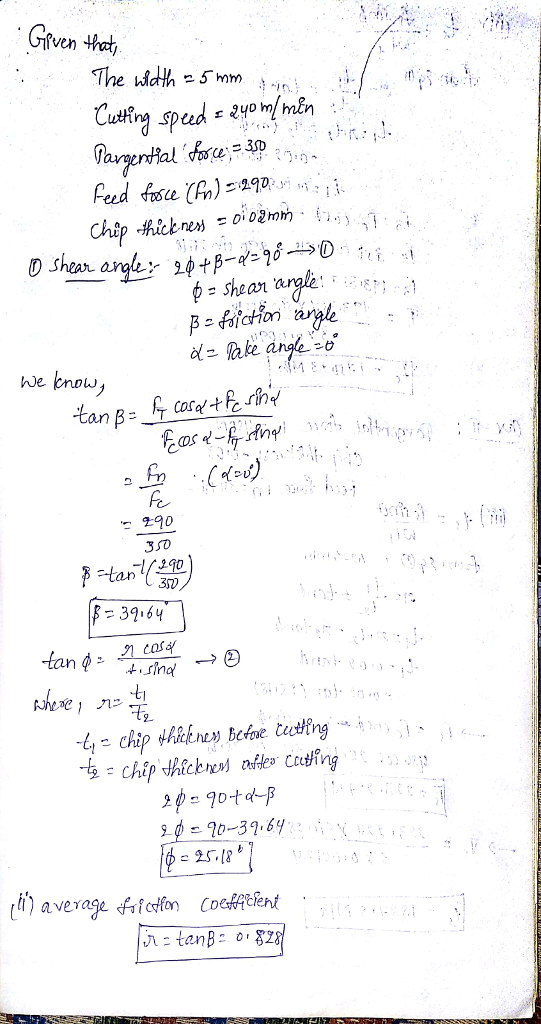 Given that,
The width = 5 mm
Cutting speed = 240 m/min
Tangential force = 350
Feed force (Fn) = 290
Chip thickness = 0.02mm
① Shear angle:- 2φ+β-α=90° → ①
φ = shear angle
β = friction angle
α = Rake angle = 0°
we know,
tan β = (F_T cosα + Fc sinα) / (Fc cosα - F_T sinα)
= Fn / Fc (α=0)
= 290 / 350
β = tan⁻¹(290/350)
β = 39.64°
tan φ = r cosα / 1-sinα → ②
where, r = t1 / t2
t1 = chip thickness Before cutting
t2 = chip thickness after cutting
2φ = 90+α-β
2φ = 90-39.64
φ = 25.18°
(ii) average friction coefficient
μ = tanβ = 0.828